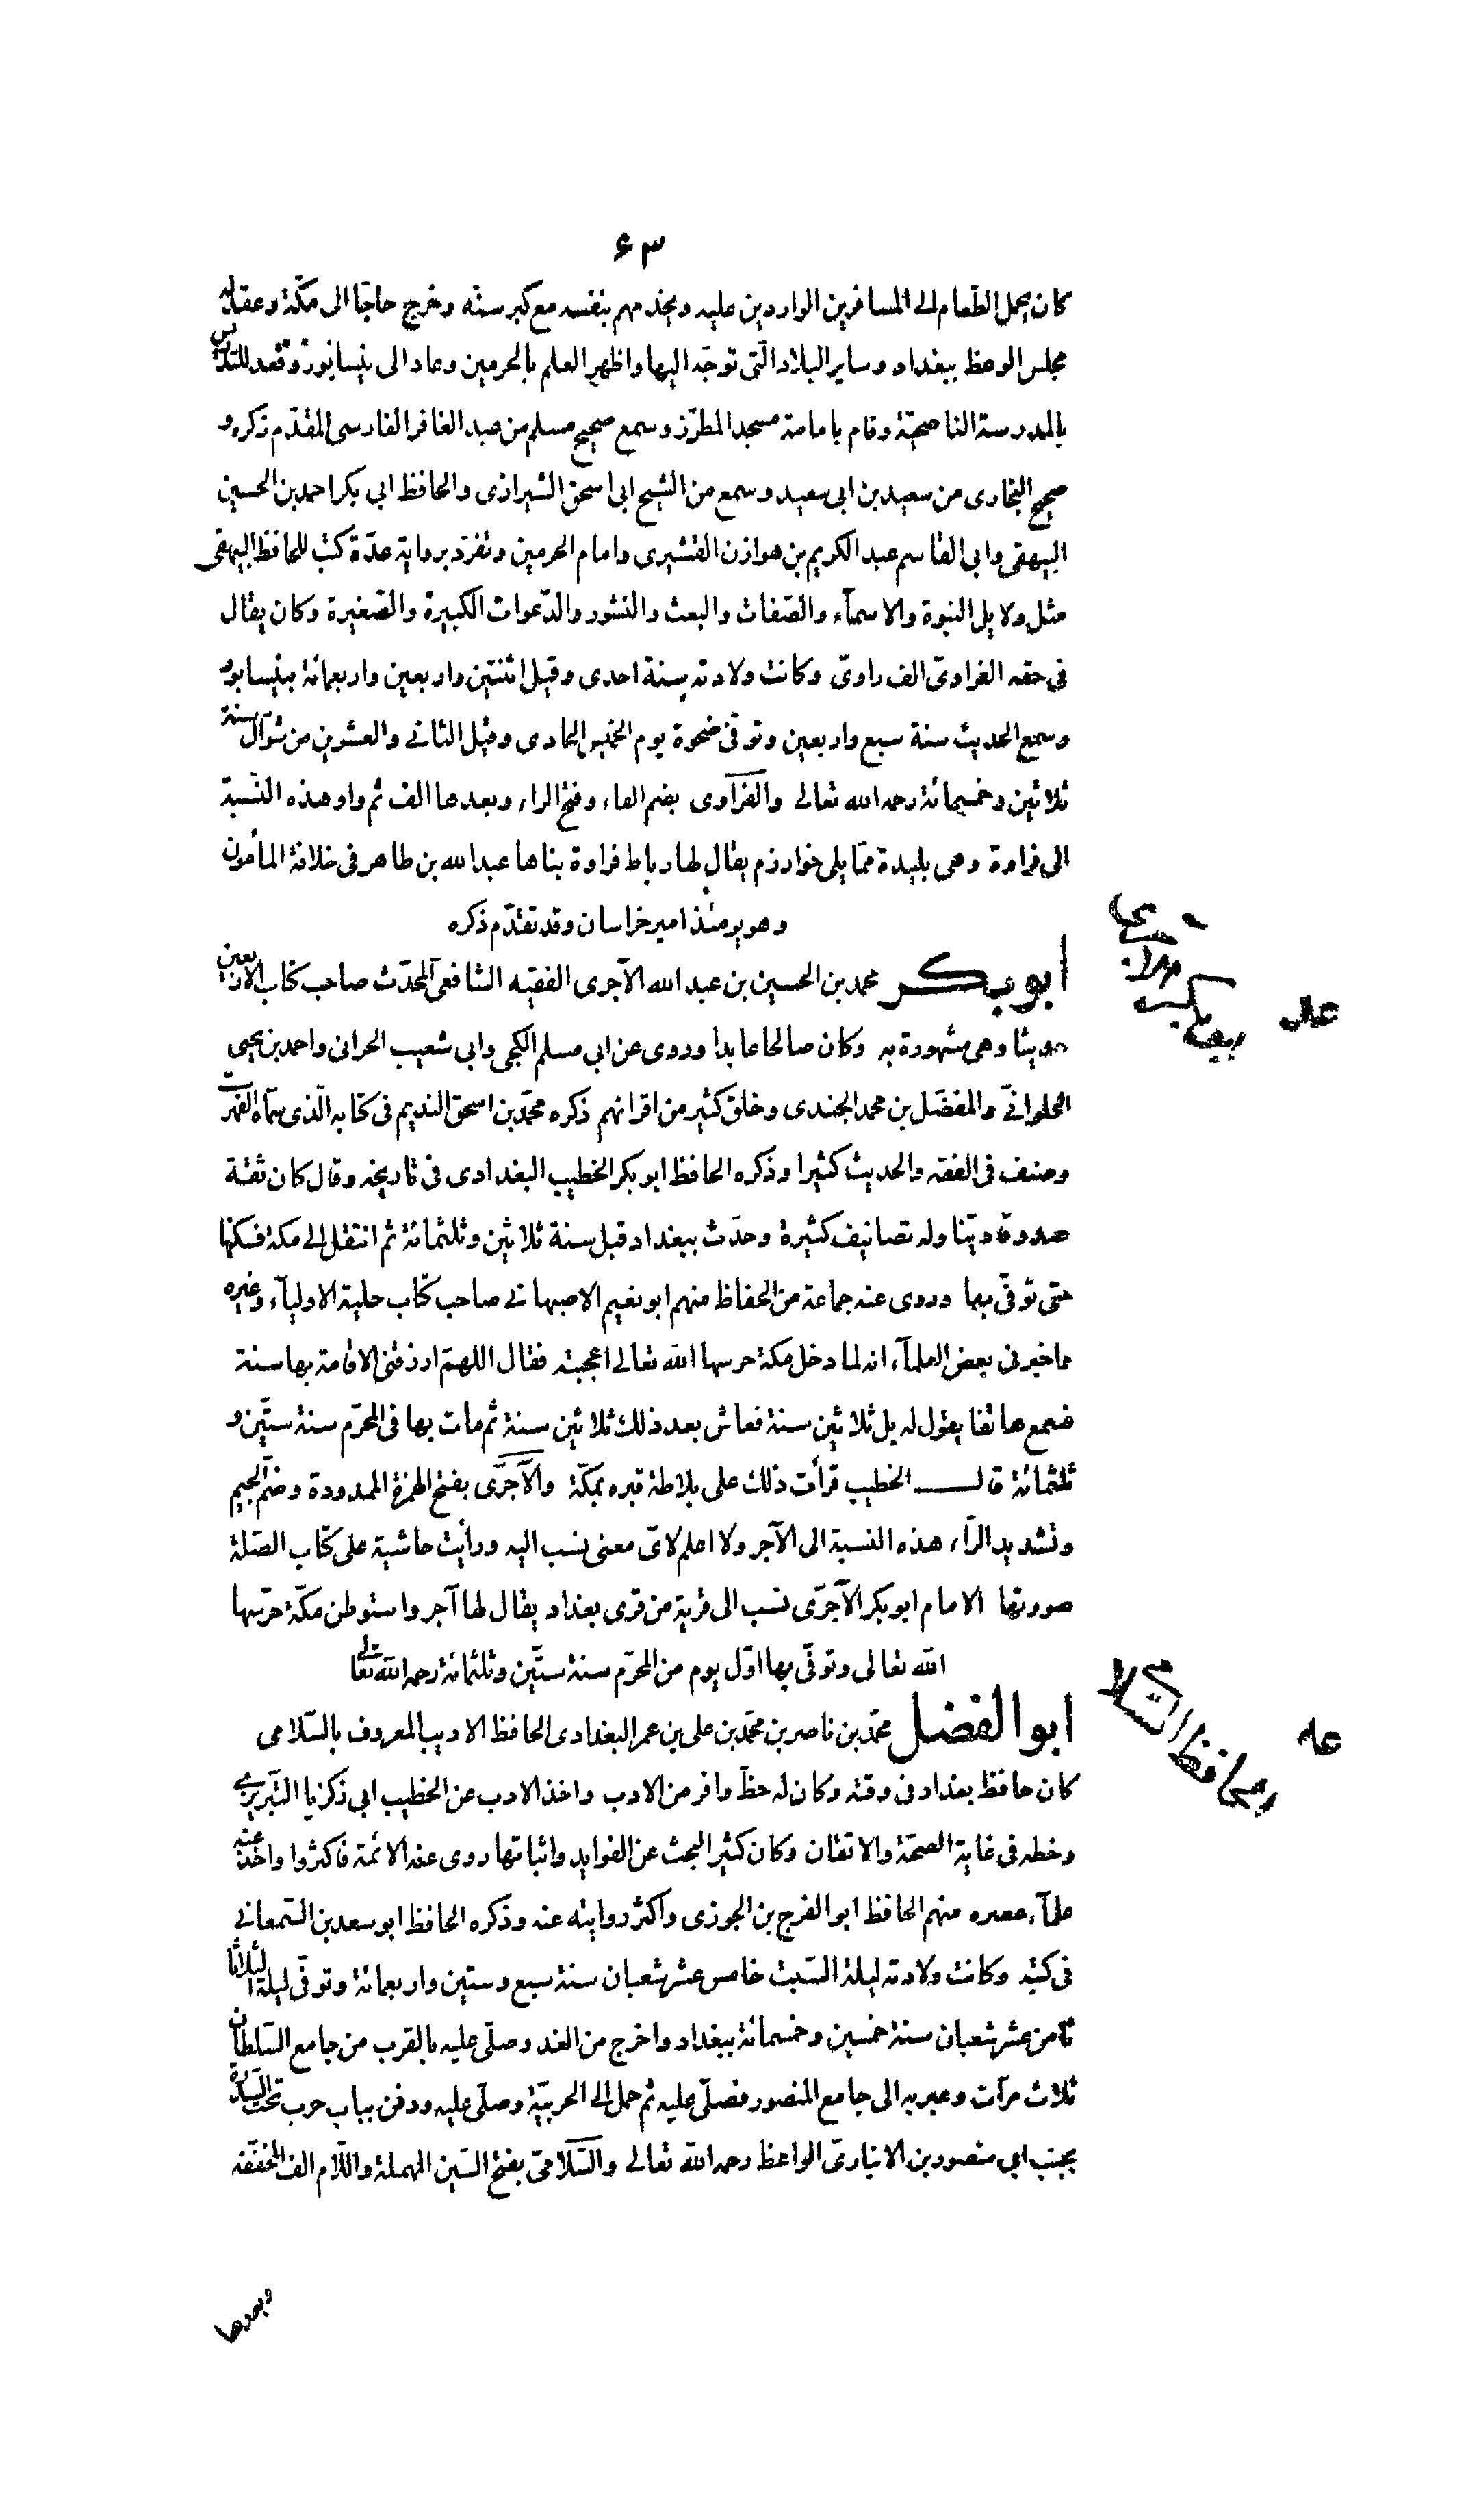 ٦٣
كان يحمل الطعام الى المسافرين الواردين عليه ويخدمهم بنفسه مع كبر سنه وخرج حاجّا الى مكّة وعقد له
مجلس الوعظ ببغداد وساير البلاد الّتى توجّه اليها واظهر العلم بالحرمين وعاد الى نيسابور وقعد للتدريس
بالمدرسة الناصحيّة وقام بامامة مسجد المطرّز وسمع صحيح مسلم من عبد الغافر الفارسى المقدّم ذكره و
صحيح البخارى من سعيد بن ابى سعيد وسمع من الشيخ ابى اسحق الشيرازى والحافظ ابى بكر احمد بن الحسين
البيهقى وابى القاسم عبد الكريم بن هوازن القشيرى وامام الحرمين وتفرّد برواية عدّة كتب للحافظ البيهقى
مثل دلايل النبوة والاسمآء والصّفات والبعث والنشور والدّعوات الكبيرة والصّغيرة وكان يقال
فى حقه الفراوىّ الف راوىّ وكانت ولادته سنة احدى وقيل اثنتين واربعين واربعمائة بنيسابور
وسمع الحديث سنة سبع واربعين وتوفّى ضحوة يوم الخميس الحادى وقيل الثانى والعشرين من شوّال سنة
ثلاثين وخمسمائة رحمه الله تعالى والفراوى بضم الفاء وفتح الراء وبعدها الف ثم واو هذه النّسبة
الى فراوة وهى بليدة ممّا يلى خوارزم يقال لها رباط فراوة بناها عبد الله بن طاهر فى خلافة المأمون
وهو يومئذ امير خراسان وقد تقدّم ذكره
ابو بكر محمد بن الحسين بن عبد الله الآجرى الفقيه الشافعى المحدّث صاحب كتاب الاربعين
حديثا وهى مشهورة به وكان صالحا عابدا وروى عن ابى مسلم الكجى وابى شعيب الحرانى واحمد بن يحيى
الحلوانىّ والمفضّل بن محمد الجندى وخلق كثير من اقرانهم ذكره محمّد بن اسحق النديم فى كتابه الّذى سمّاه الفهرست
وصنف فى الفقه والحديث كثيرا وذكره الحافظ ابو بكر الخطيب البغدادى فى تاريخه وقال كان ثقة
صدوقا ديّنا وله تصانيف كثيرة وحدّث ببغداد قبل سنة ثلاثين وثلثمائة ثم انتقل الى مكة فسكنها
حتى توفّى بها وروى عنه جماعة من الحفاظ منهم ابو نعيم الاصبهانى صاحب كتاب حلية الاوليآء وغيره
واخبرنى بعض العلمآء انه لما دخل مكة حرسها الله تعالى اعجبته فقال اللهمّ ارزقنى الاقامة بها سنة
فسمع هاتفا يقول له بل ثلاثين سنة فعاش بعد ذلك ثلاثين سنة ثم مات بها فى المحرّم سنة ستّين و
ثلثمائة قال الخطيب قرأت ذلك على بلاطة قبره بمكّة والآجرّى بفتح الهمزة الممدودة وضمّ الجيم
وتشديد الرّاء هذه النسبة الى الآجر ولا اعلم لاىّ معنى نسب اليه ورأيت حاشية على كتاب الصّلة
صورتها الامام ابو بكر الآجرّى نسب الى قرية من قرى بغداد يقال لها آجر واستوطن مكّة حرسها
الله تعالى وتوفّى بها اوّل يوم من المحرّم سنة ستّين وثلثمائة رحمه الله تعالى
الحافظ السّلامى
ابو الفضل محمّد بن ناصر بن محمّد بن على بن عمر البغدادى الحافظ الاديب المعروف بالسّلامى
كان حافظ بغداد فى وقته وكان له حظّ وافر من الادب واخذ الادب عن الخطيب ابى زكريا التّبريزى
وخطه فى غاية الصحّة والاتقان وكان كثير البحث عن الفوايد واثباتها روى عنه الائمة فاكثروا واخذ عنه
علمآء عصره منهم الحافظ ابو الفرج بن الجوزى واكثر روايته عنه وذكره الحافظ ابو سعد بن السّمعانى
فى كتبه وكانت ولادته ليلة السّبت خامس عشر شعبان سنة سبع وستين واربعمائة وتوفّى ليلة الثلاثا
ثامن عشر شعبان سنة خمسين وخمسمائة ببغداد واخرج من الغد وصلّى عليه بالقرب من جامع السّلطان
ثلاث مرّات وعبر به الى جامع المنصور فصلّى عليه ثم حمل الى الحربيّة وصلّى عليه ودفن بباب حرب تحت السّدرة
بجنب ابى منصور بن الانبارىّ الواعظ رحمه الله تعالى والسّلامىّ بفتح السّين المهملة واللّام الف المخفّفة
وبعدها